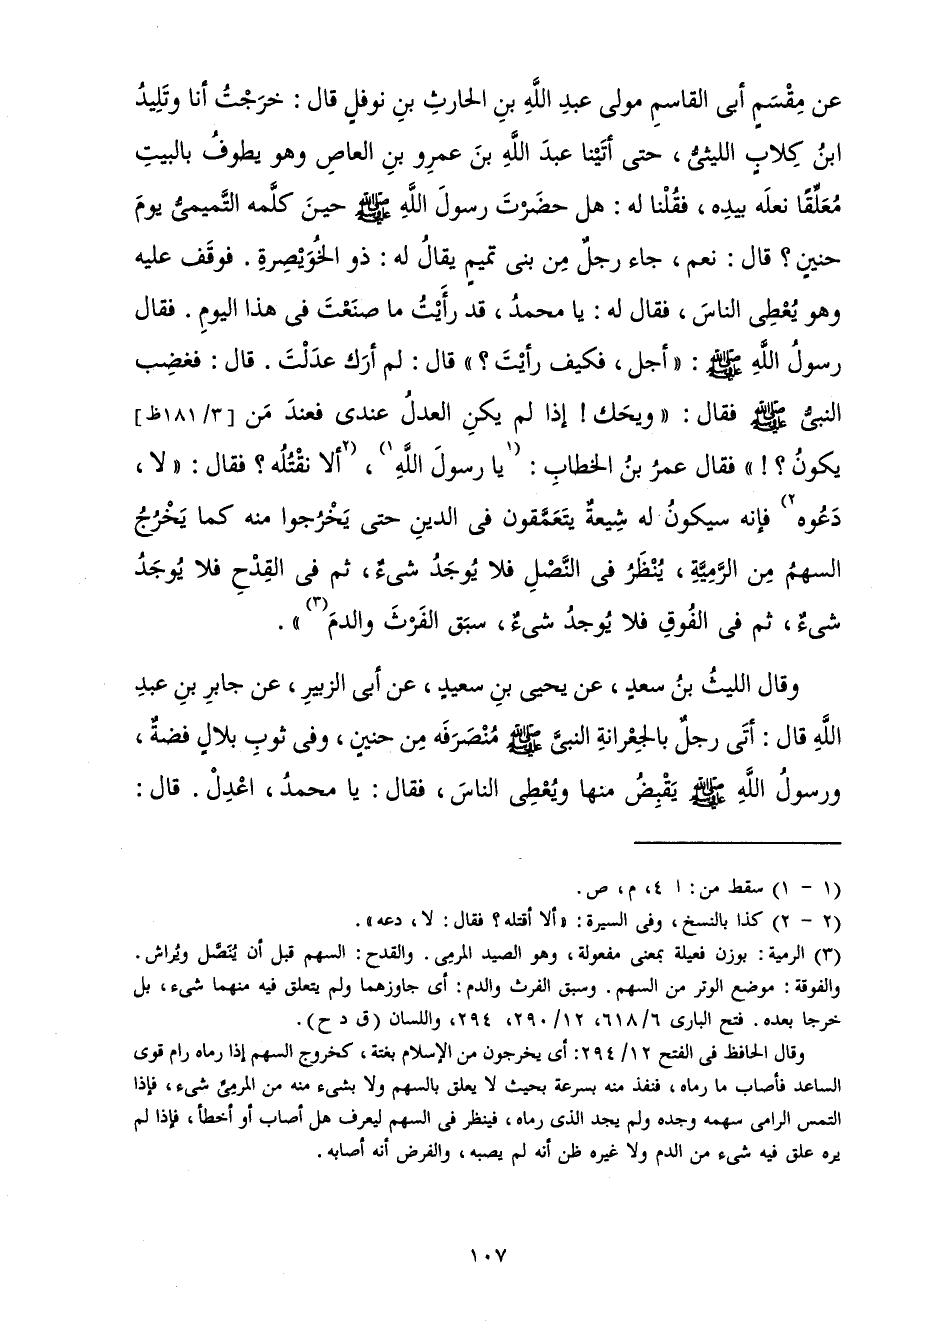 عن مِقْسَمٍ أبى القاسمِ مولى عبدِ اللَّهِ بنِ الحارثِ بنِ نوفلٍ قال : خرَجْتُ أنا وتَلِيدُ
ابنُ كِلابٍ الليثىُّ ، حتى أتَيْنا عبدَ اللَّهِ بنَ عمرِو بنِ العاصِ وهو يطوفُ بالبيتِ
مُعَلِّقًا نعلَه بيدِه ، فقُلْنا له : هل حضَرْتَ رسولَ اللَّهِ ﷺ حينَ كلَّمه التَّميمىُّ يومَ
حنينٍ ؟ قال : نعم ، جاء رجلٌ مِن بنى تميمٍ يقالُ له : ذو الخُوَيْصِرةِ . فوقَف عليه
وهو يُعْطِى الناسَ ، فقال له : يا محمدُ ، قد رأَيْتُ ما صنَعْتَ فى هذا اليومِ . فقال
رسولُ اللَّهِ ﷺ : « أجل ، فكيف رأيْتَ ؟ » قال : لم أرَك عدَلْتَ . قال : فغضِب
النبىُّ ﷺ فقال : « ويحَك ! إذا لم يكنِ العدلُ عندى فعندَ مَن [٣/ ١٨١ظ]
يكونُ ؟! » فقال عمرُ بنُ الخطابِ : (١)يا رسولَ اللَّهِ١) ، (٢ألا نقْتُلُه ؟ فقال : « لا ،
دَعُوه٢) فإنه سيكونُ له شِيعةٌ يتَعَمَّقون فى الدينِ حتى يَخْرُجوا منه كما يَخْرُجُ
السهمُ مِن الرَّمِيَّةِ ، يُنْظَرُ فى النَّصْلِ فلا يُوجَدُ شىءٌ ، ثم فى القِدْحِ فلا يُوجَدُ
شىءٌ ، ثم فى الفُوقِ فلا يُوجدُ شىءٌ ، سبَق الفَرْثَ والدمَ(٣) » .
وقال الليثُ بنُ سعدٍ ، عن يحيى بنِ سعيدٍ ، عن أبى الزبيرِ ، عن جابرِ بنِ عبدِ
اللَّهِ قال : أتَى رجلٌ بالجِعْرانةِ النبىَّ ﷺ مُنْصَرَفَه مِن حنينٍ ، وفى ثوبِ بلالٍ فضةٌ ،
ورسولُ اللَّهِ ﷺ يَقْبِضُ منها ويُعْطِى الناسَ ، فقال : يا محمدُ ، اعْدِلْ . قال :
(١ - ١) سقط من : ا ٤، م ، ص .
(٢ - ٢) كذا بالنسخ ، وفى السيرة : « ألا أقتله ؟ فقال : لا ، دعه » .
(٣) الرمية : بوزن فعيلة بمعنى مفعولة ، وهو الصيد المرمى . والقدح : السهم قبل أن يُنَصَّل ويُراش .
والفوقة : موضع الوتر من السهم . وسبق الفرث والدم : أى جاوزهما ولم يتعلق فيه منهما شىء ، بل
خرجا بعده . فتح البارى ٦/ ٦١٨، ١٢/ ٢٩٠، ٢٩٤، واللسان (ق د ح) .
وقال الحافظ فى الفتح ١٢/ ٢٩٤: أى يخرجون من الإسلام بغتة ، كخروج السهم إذا رماه رام قوى
الساعد فأصاب ما رماه ، فنفذ منه بسرعة بحيث لا يعلق بالسهم ولا بشىء منه من المرمىّ شىء ، فإذا
التمس الرامى سهمه وجده ولم يجد الذى رماه ، فينظر فى السهم ليعرف هل أصاب أو أخطأ ، فإذا لم
يره علق فيه شىء من الدم ولا غيره ظن أنه لم يصبه ، والفرض أنه أصابه .
١٠٧